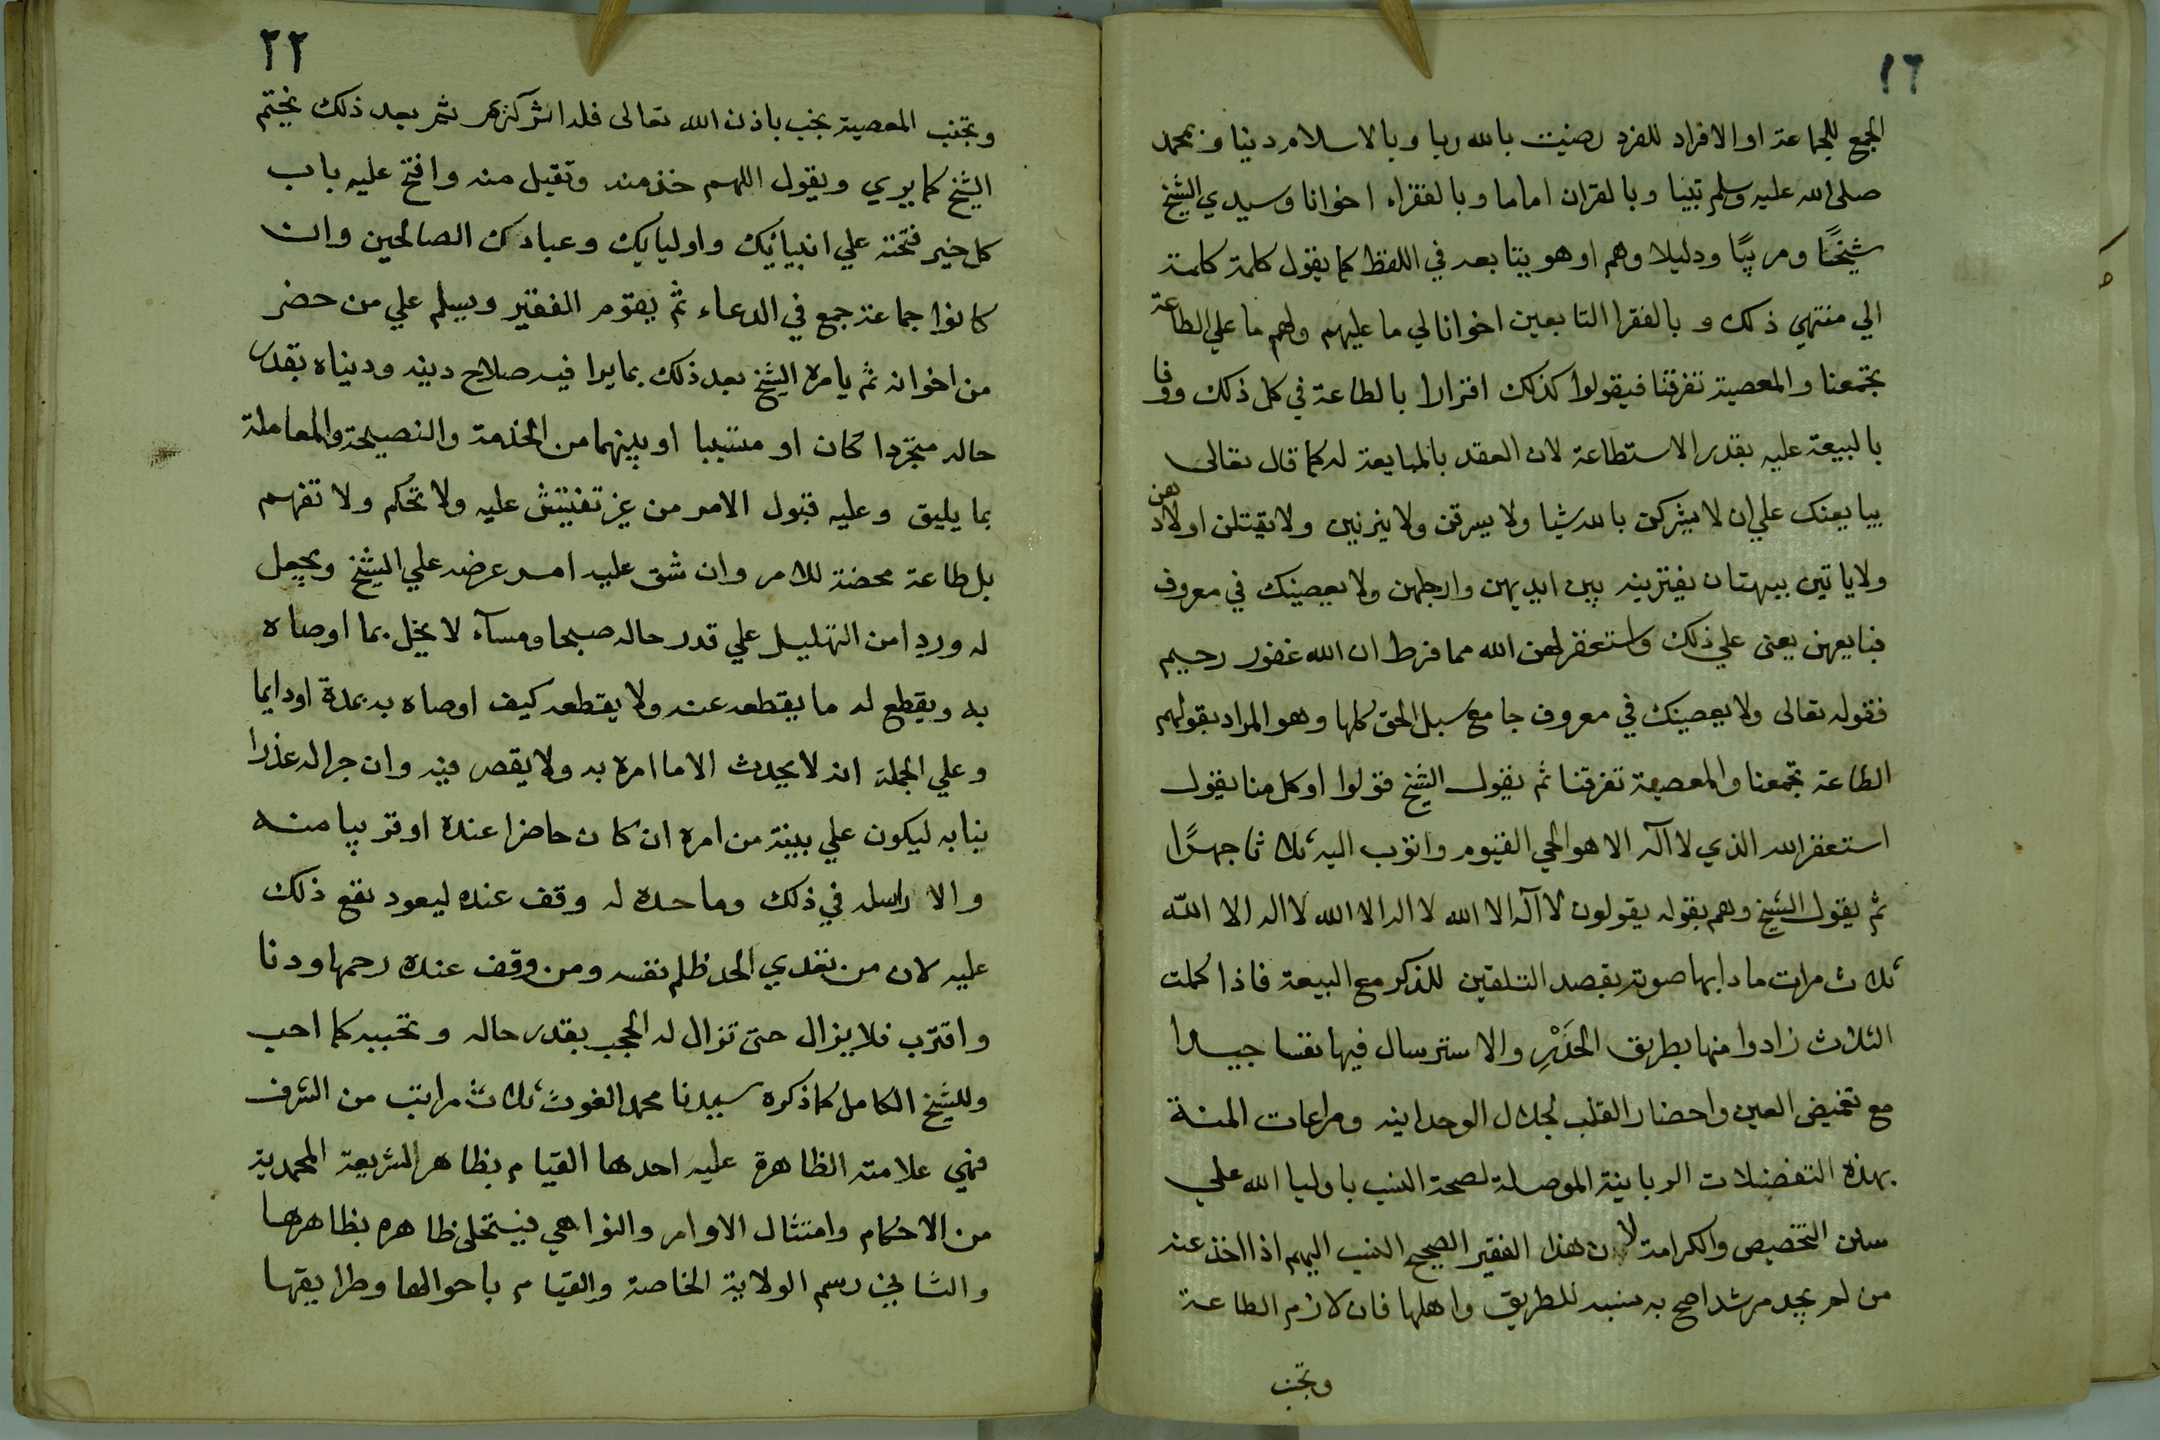 ١٦
الجمع للجماعة او الافراد للفرد رضيت بالله ربا وبالاسلام دينا وبمحمد
صلى الله عليه وسلم نبيا وبالقران اماما وبالفقراء اخوانا وسيدي الشيخ
شيخًا ومربيًا ودليلا وهم او هو يتابعه في اللفظ كما يقول كلمة كلمة
الي منتهي ذلك وبالفقرا التابعين اخوانا لي ما عليهم ولهم ما علي الطاعة
تجمعنا والمعصية تفرقنا فيقولوا كذلك اقرارا بالطاعة في كل ذلك ووفا
بالبيعة عليه بقدر الاستطاعة لان العقد بالمبايعة له كما قال تعالى
يبايعنك علي ان لا يشركن بالله شيا ولا يسرقن ولا يزنين ولا يقتلن اولادهن
ولا ياتين ببهتان يفترينه بين ايديهن وارجلهن ولا يعصينك في معروف
فبايعهن يعنى علي ذلك واستغفر لهن الله مما فرط ان الله غفور رحيم
فقوله تعالى ولا يعصينك في معروف جامع سبل الحق كلها وهو المراد بقولهم
الطاعة تجمعنا والمعصية تفرقنا ثم يقول الشيخ قولوا او كل منا يقول
استغفر الله الذي لا اله الا هو الحي القيوم واتوب اليه ثلاثا جهرًا
ثم يقول الشيخ وهم بقوله يقولون لا اله الا الله لا اله الا الله لا اله الا الله
ثلاث مرات مادا بها صوته بقصد التلقين للذكر مع البيعة فاذا كملت
الثلاث زادوا منها بطريق الحَدْرِ والاسترسال فيها نفسا جيدا
مع تغميض العين واحضار القلب لجلال الوحدانية ومراعات المنة
بهذه التفضلات الربانية الموصلة لصحة النسب باوليا الله علي
سنن التخصيص والكرامة لان هذا الفقير الصحيح النسب اليهم اذا اخذ عنه
من لم يجد مرشدا صح به نسبه للطريق واهلها فان لازم الطاعة
وتجنب
٢٢
وتجنب المعصية نجب باذن الله تعالى فلذا ثم بعد ذلك يختم
الشيخ كما يري ويقول اللهم خذ منه وتقبل منه وافتح عليه باب
كل خير فتحته علي انبيائك واوليايك وعبادك الصالحين وان
كانوا جماعة جمع في الدعاء ثم يقوم الفقير ويسلم علي من حضر
من اخوانه ثم يامره الشيخ بعد ذلك بما يرا فيه صلاح دينه ودنياه بقدر
حاله متجردا كان او متسببا او بينهما من الخدمة والنصيحة والمعاملة
بما يليق وعليه قبول الامر من غير تفتيش عليه ولا تحكم ولا تفهم
بل طاعة محضة للامر وان شق عليه امر عرضه علي الشيخ ويجعل
له وردا من التهليل علي قدر حاله صبحا ومسآء لا يخل بما اوصاه
به ويقطع له ما يقطعه عنه ولا يقطعه كيف اوصاه به بمدة او دايما
وعلي الجملة انه لا يحدث الا ما امره به ولا يقصر فيه وان جرا له عذرا
نبا به ليكون علي بينة من امره ان كان حاضرا عنده او قريبا منه
والا راسله في ذلك وما حده له وقف عنده ليعود نفع ذلك
عليه لان من تعدي الحد ظلم نفسه ومن وقف عنده رحمها ودنا
واقترب فلا يزال حتى تزال له الحجب بقدر حاله وتحببه كما احب
وللشيخ الكامل كما ذكره سيدنا محمد الغوث ثلاث مراتب من الشرف
فهي علامته الظاهرة عليه احدها القيام بظاهر الشريعة المحمدية
من الاحكام وامتثال الاوامر والنواهي فيتحلى ظاهره بظاهرها
والثاني رسم الولاية الخاصة والقيام باحوالها وطرايقها